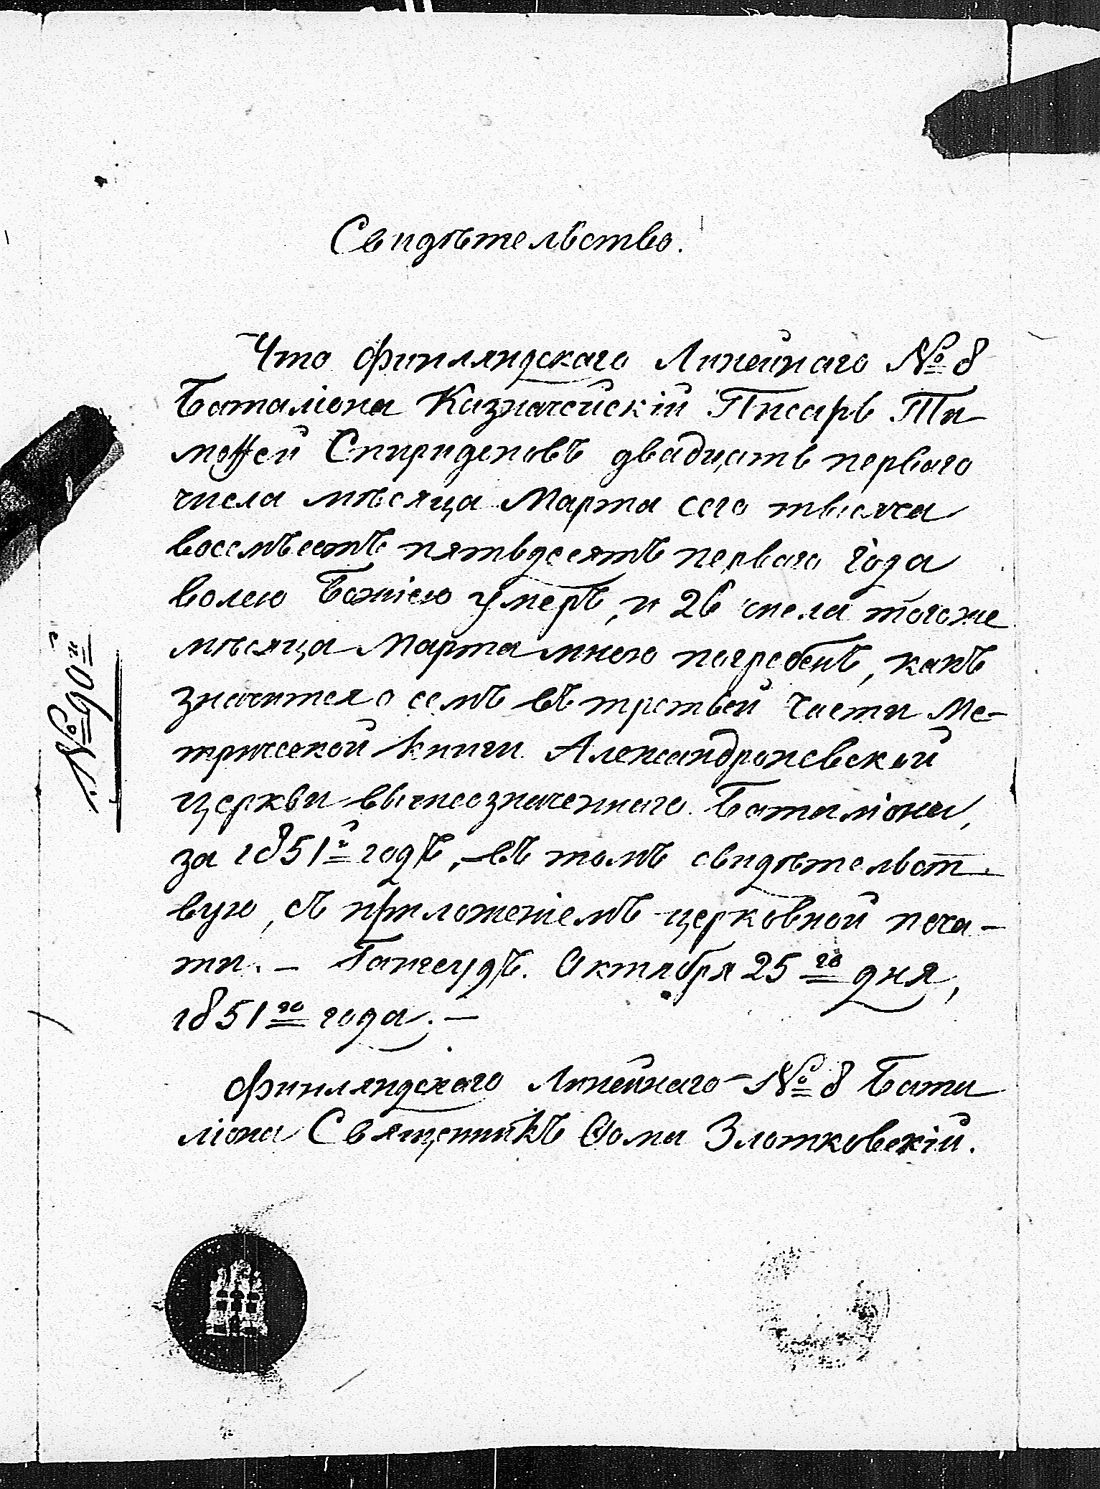 Свидѣтельство.
Что Финляндскаго Линейнаго № 8
Баталіона Казначейскій Писарь Ти
моѳей Спиридоновъ двадцать перваго
числа мѣсяца Марта сего тысяча
восемъсотъ пятьдесятъ перваго года
волею Божіею умеръ, и 26 числа тогоже
мѣсяца Марта мною погребенъ, какъ
значится о семъ въ третьей части Ме-
трической книги Александроневской
церкви вышеозначеннаго Баталіона,
за 1851й годъ, въ томъ свидѣтельст
вую, съ приложеніемъ церковной печа-
ти. — Гангеудъ. Октября 25го дня,
1851го года. —
Финляндскаго Линейнаго № 8 Бата
ліона Священникъ Ѳома Злотковскій.
№ 90й